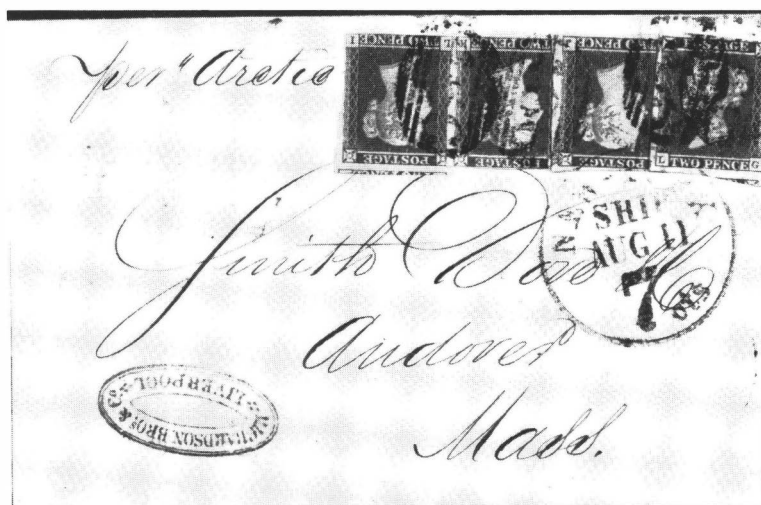 per Arctic
TWO PENCE TWO PENCE TWO PENCE POSTAGE
POSTAGE POSTAGE POSTAGE TWO PENCE
SHIP
AUG 11
7
cts
Smith Dove & Co
Andover
Mass.
RICHARDSON BROS & CO
LIVERPOOL